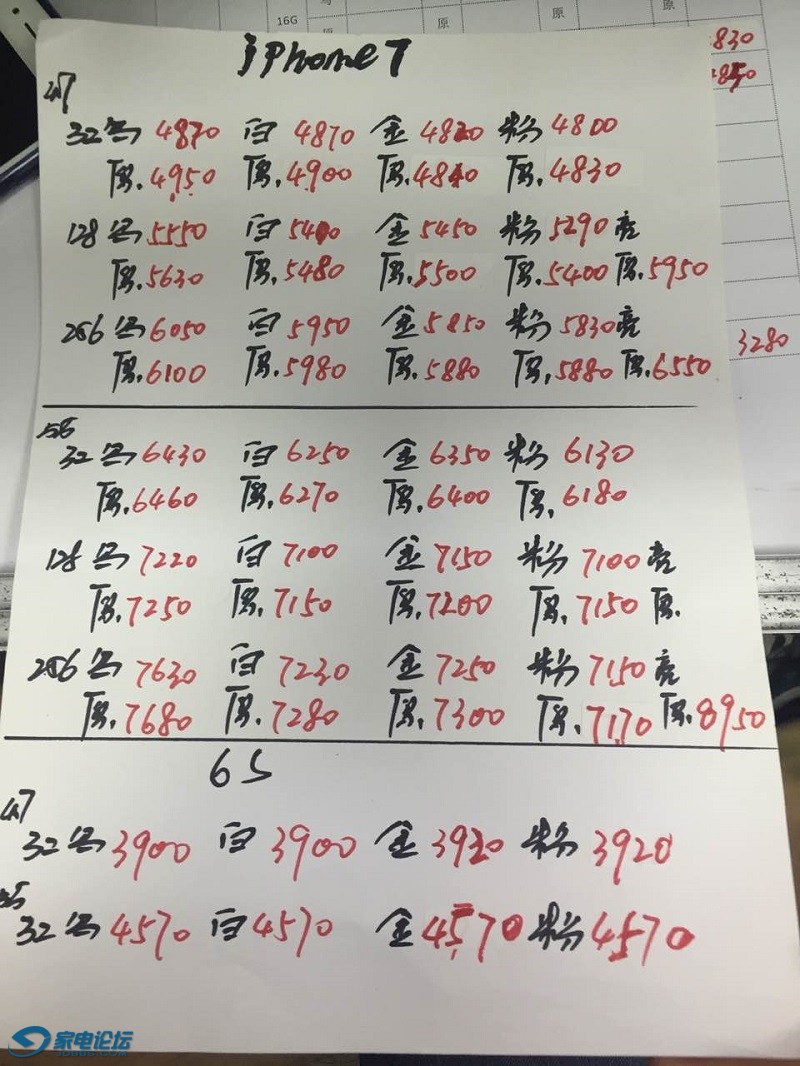 16G
原
原
4830
4850
iPhone7
47
32 黑 4870 白 4870 金 4820 粉 4800
原.4950 原.4900 原.4840 原.4830
128 黑 5550 白 5400 金 5450 粉 5290 亮
原.5630 原.5480 原.5500 原.5400 原.5950
256 黑 6050 白 5950 金 5850 粉 5830 亮
原.6100 原.5980 原.5880 原.5880 原.6550
3280
55
32 黑 6430 白 6250 金 6350 粉 6130
原.6460 原.6270 原.6400 原.6180
128 黑 7220 白 7100 金 7150 粉 7100 亮
原.7250 原.7150 原.7200 原.7150 原.
256 黑 7630 白 7230 金 7250 粉 7150 亮
原.7680 原.7280 原.7300 原.7170 原.8950
6S
47
32 黑 3900 白 3900 金 3920 粉 3920
55
32 黑 4570 白 4570 金 4570 粉 4570
家电论坛
JDBBS.COM